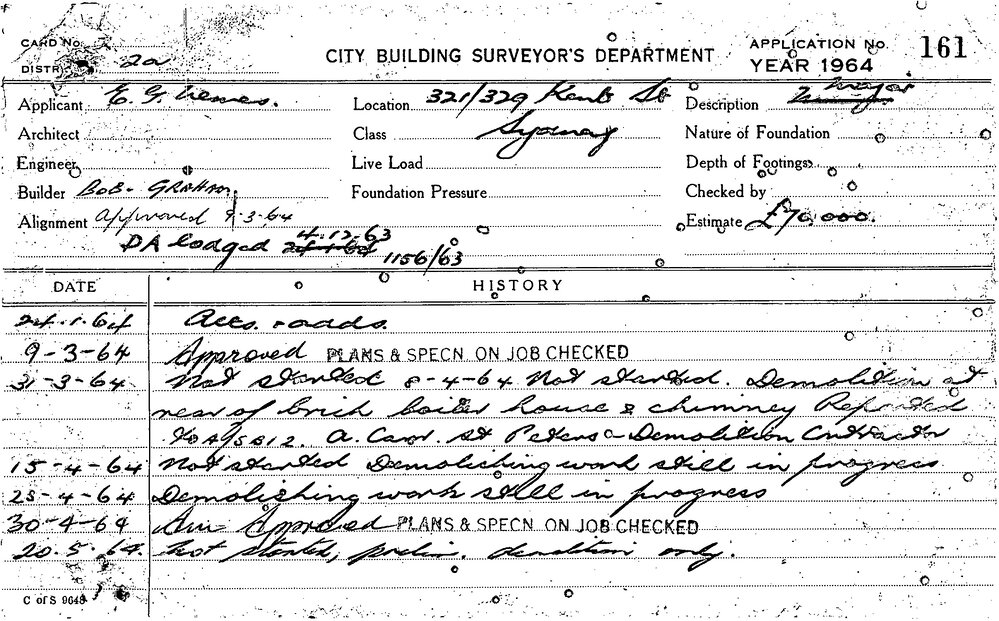 CARD No.
DISTR. 2a
CITY BUILDING SURVEYOR'S DEPARTMENT
APPLICATION No. 161
YEAR 1964
Applicant E. G. Nemes. Location 321/329 Kent St Description Major
Architect Class Sydney Nature of Foundation
Engineer Live Load Depth of Footings
Builder BOB. GRAHAM. Foundation Pressure Checked by
Alignment Approved 9-3-64 Estimate £70,000.
DA lodged 4.12.63 1156/63
DATE HISTORY
24.1.64 Alts. & adds.
9-3-64 Approved PLANS & SPECN ON JOB CHECKED
31-3-64 Not started 8-4-64 Not started. Demolition at
rear of brick boiler house & chimney Reported
A. Carol. St Peters Demolition Contractor
15-4-64 Not started Demolishing work still in progress
23-4-64 Demolishing work still in progress
30-4-64 Approved PLANS & SPECN ON JOB CHECKED
20.5.64. Not started, prelim. demolition only.
C of S 9648